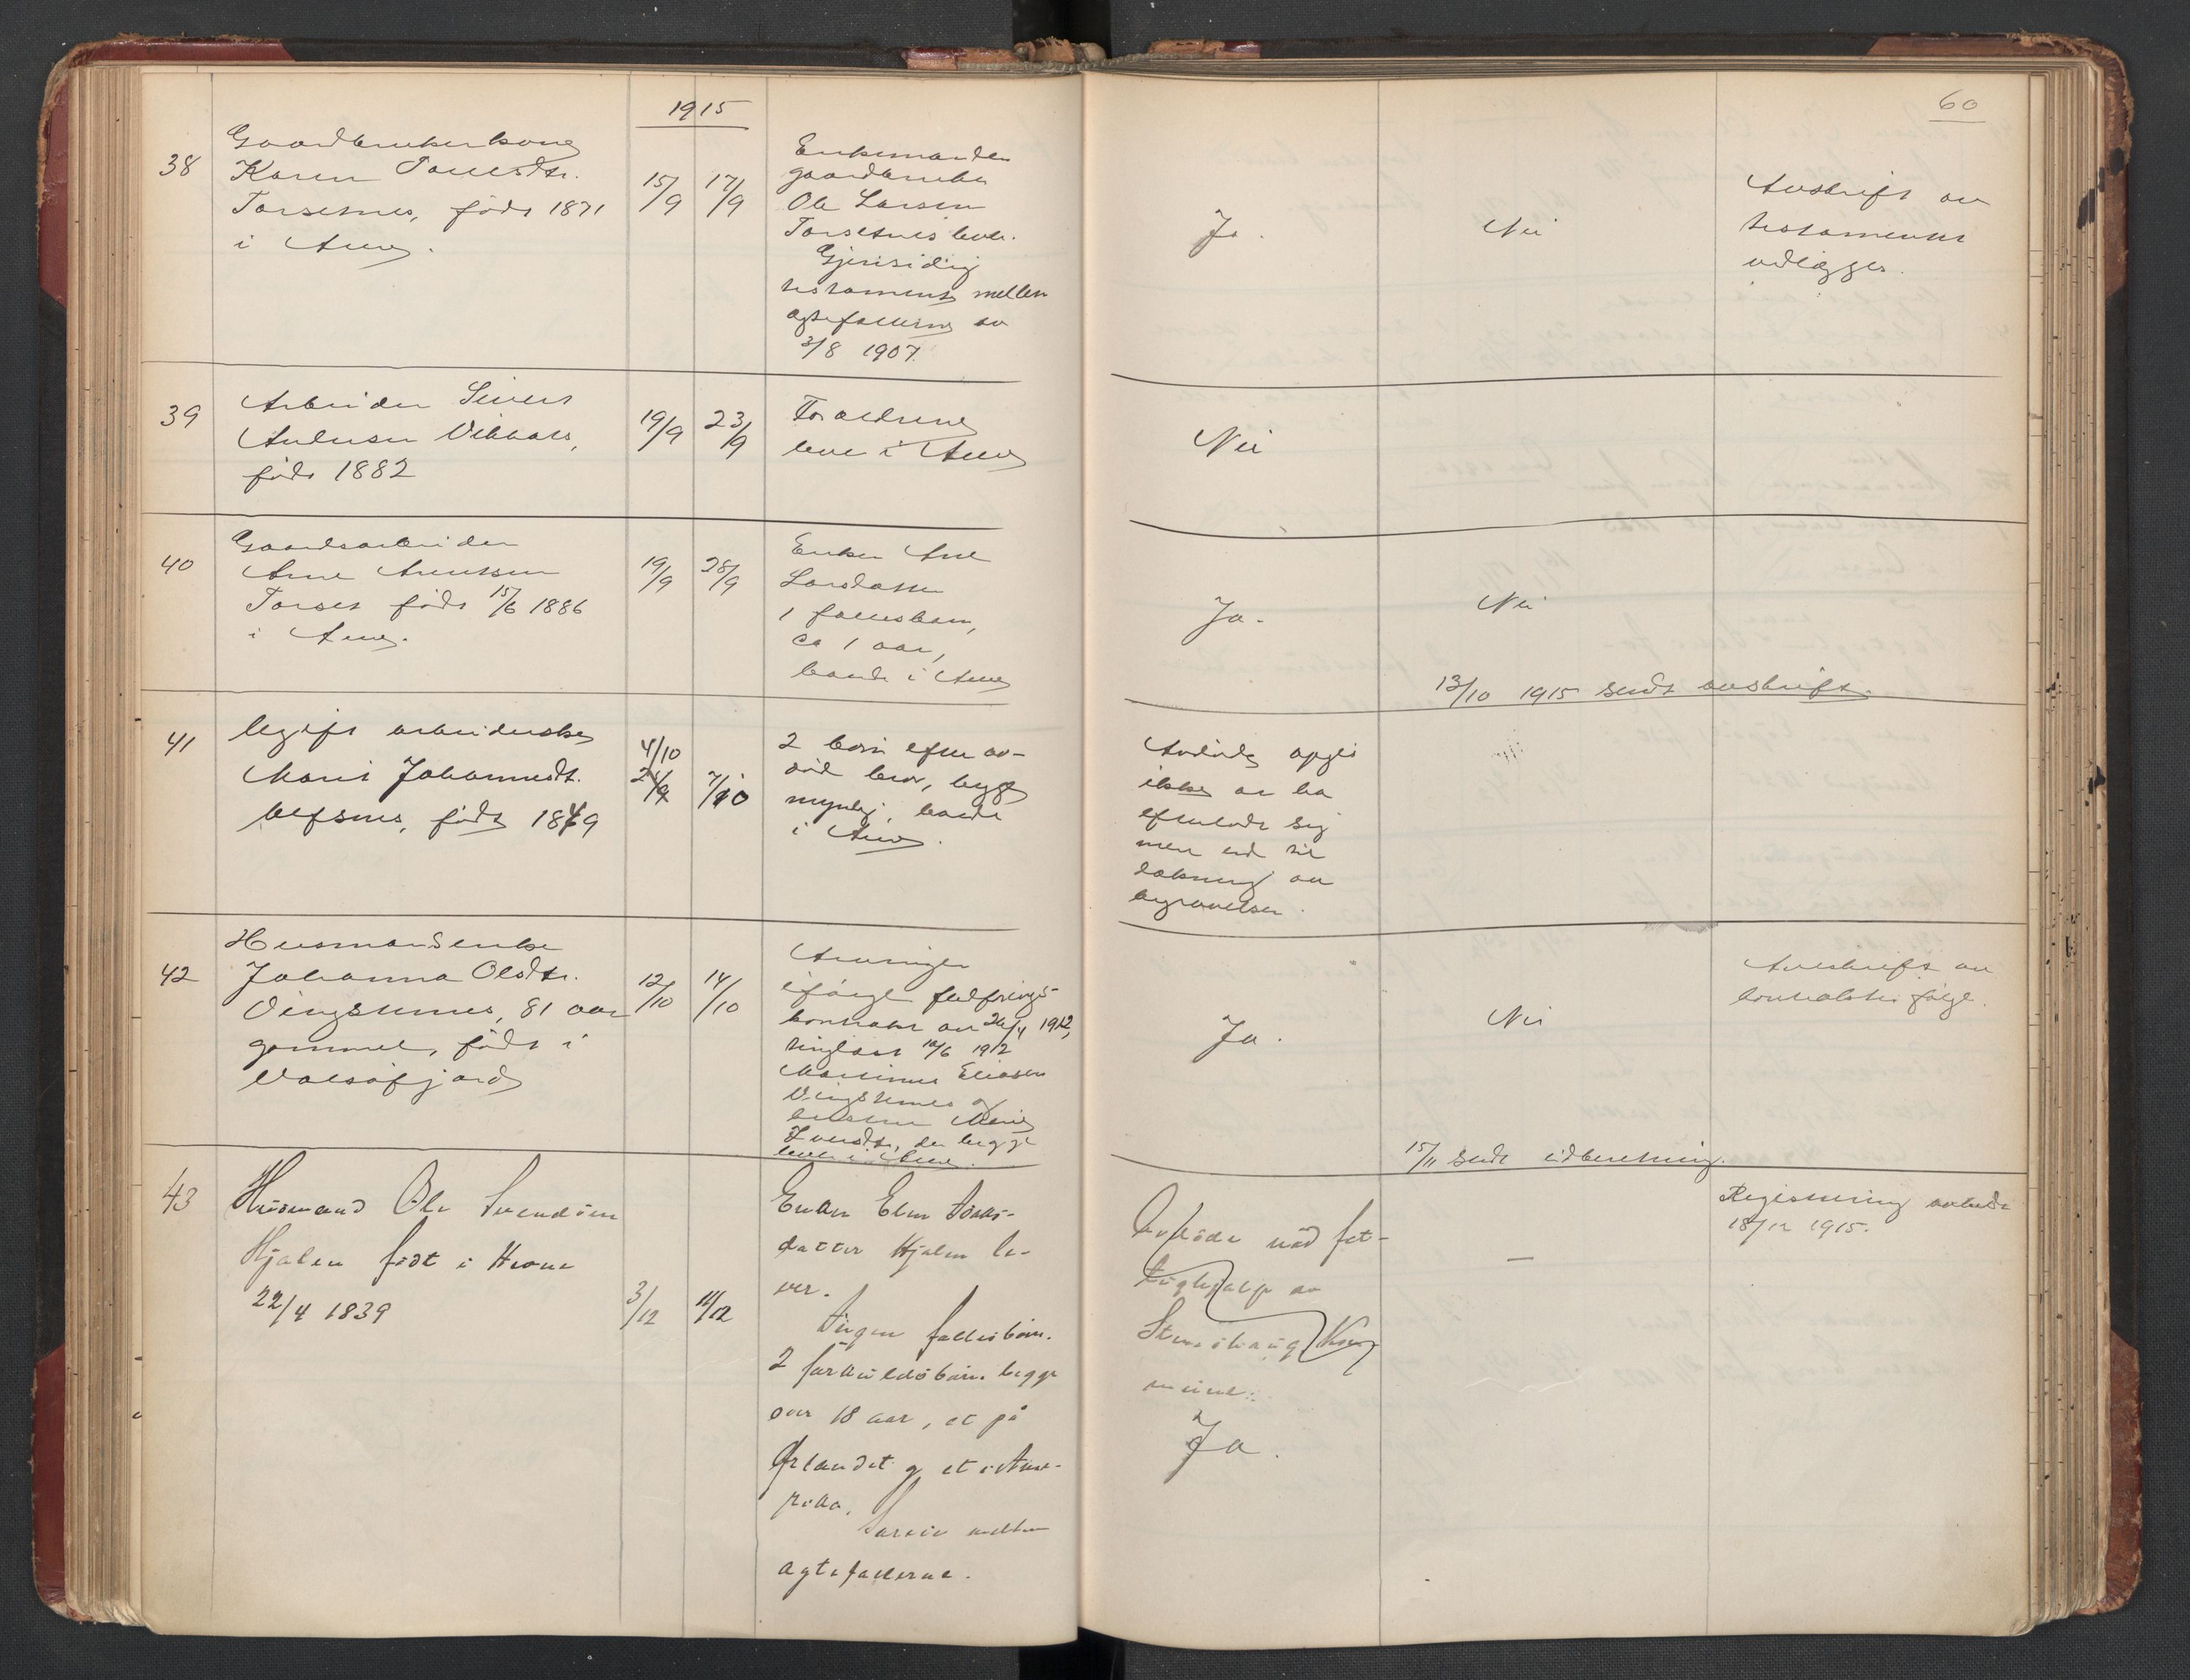 1915
60
38
Gaardbrukerkone
Karen Paulsdtr.
Torsetnes, født 1871
i Aure.
15/9
17/9
Enkemanden
gaardbruker
Ole Larsen
Torsetnes lever.
Gjensidig
testament mellem
egtefællerne av
3/8 1907.
Ja.
Nei
Avskrift av
testamentet
vedlægges.
39
Arbeider Sivert
født 1882
19/9
23/9
Forældrene
lever i Aure
Nei
40
Gaardsarbeider
Arne Arntsen
Torset født 15/6 1886
i Aure.
19/9
28/9
Enken Ane
Larsdatter
1 fællesbarn,
ca 1 aar,
baade i Aure
Ja.
Nei
13/10 1915 sendt avskrift.
41
Ugift arbeiderske
Marit Johannesdt.
født 1849
4/10
7/10
2 børn efter av-
død bror, begge
myndig, baade
i Aure.
Avdøde opgis
ikke at ha
efterladt sig
mere end til
dækning av
begravelsen.
42
Husmandsenke
Johanna Olsdtr.
Vingsternes, 81 aar
gammel, født i
Valsøfjord
12/10
14/10
Arvinger
ifølge fledførings-
kontrakt av 26/4 1912,
tinglæst 12/6 1912
Martinus Eliasen
Vingsternes og
hustru Marie
Iversdtr, der begge
lever i Aure.
Ja.
Nei
Avskrift av
kontrakten følger.
15/11 sendt indberetning.
43
Husmand Ole Svendsen
Hjalen født i Hevne
22/4 1839
3/12
11/12
Enken Elen Isaks-
datter Hjalen le-
ver.
Ingen fællesbørn.
2 særkuldsbørn begge
over 18 aar, et på
Ørlandet og et i Ame-
rika.
Særeie mellem
ægtefællerne.
Avdøde nød fat-
tighjælp av
Stemshaug Kom-
mune.
Ja.
—
Registrering avholdt
18/12 1915.